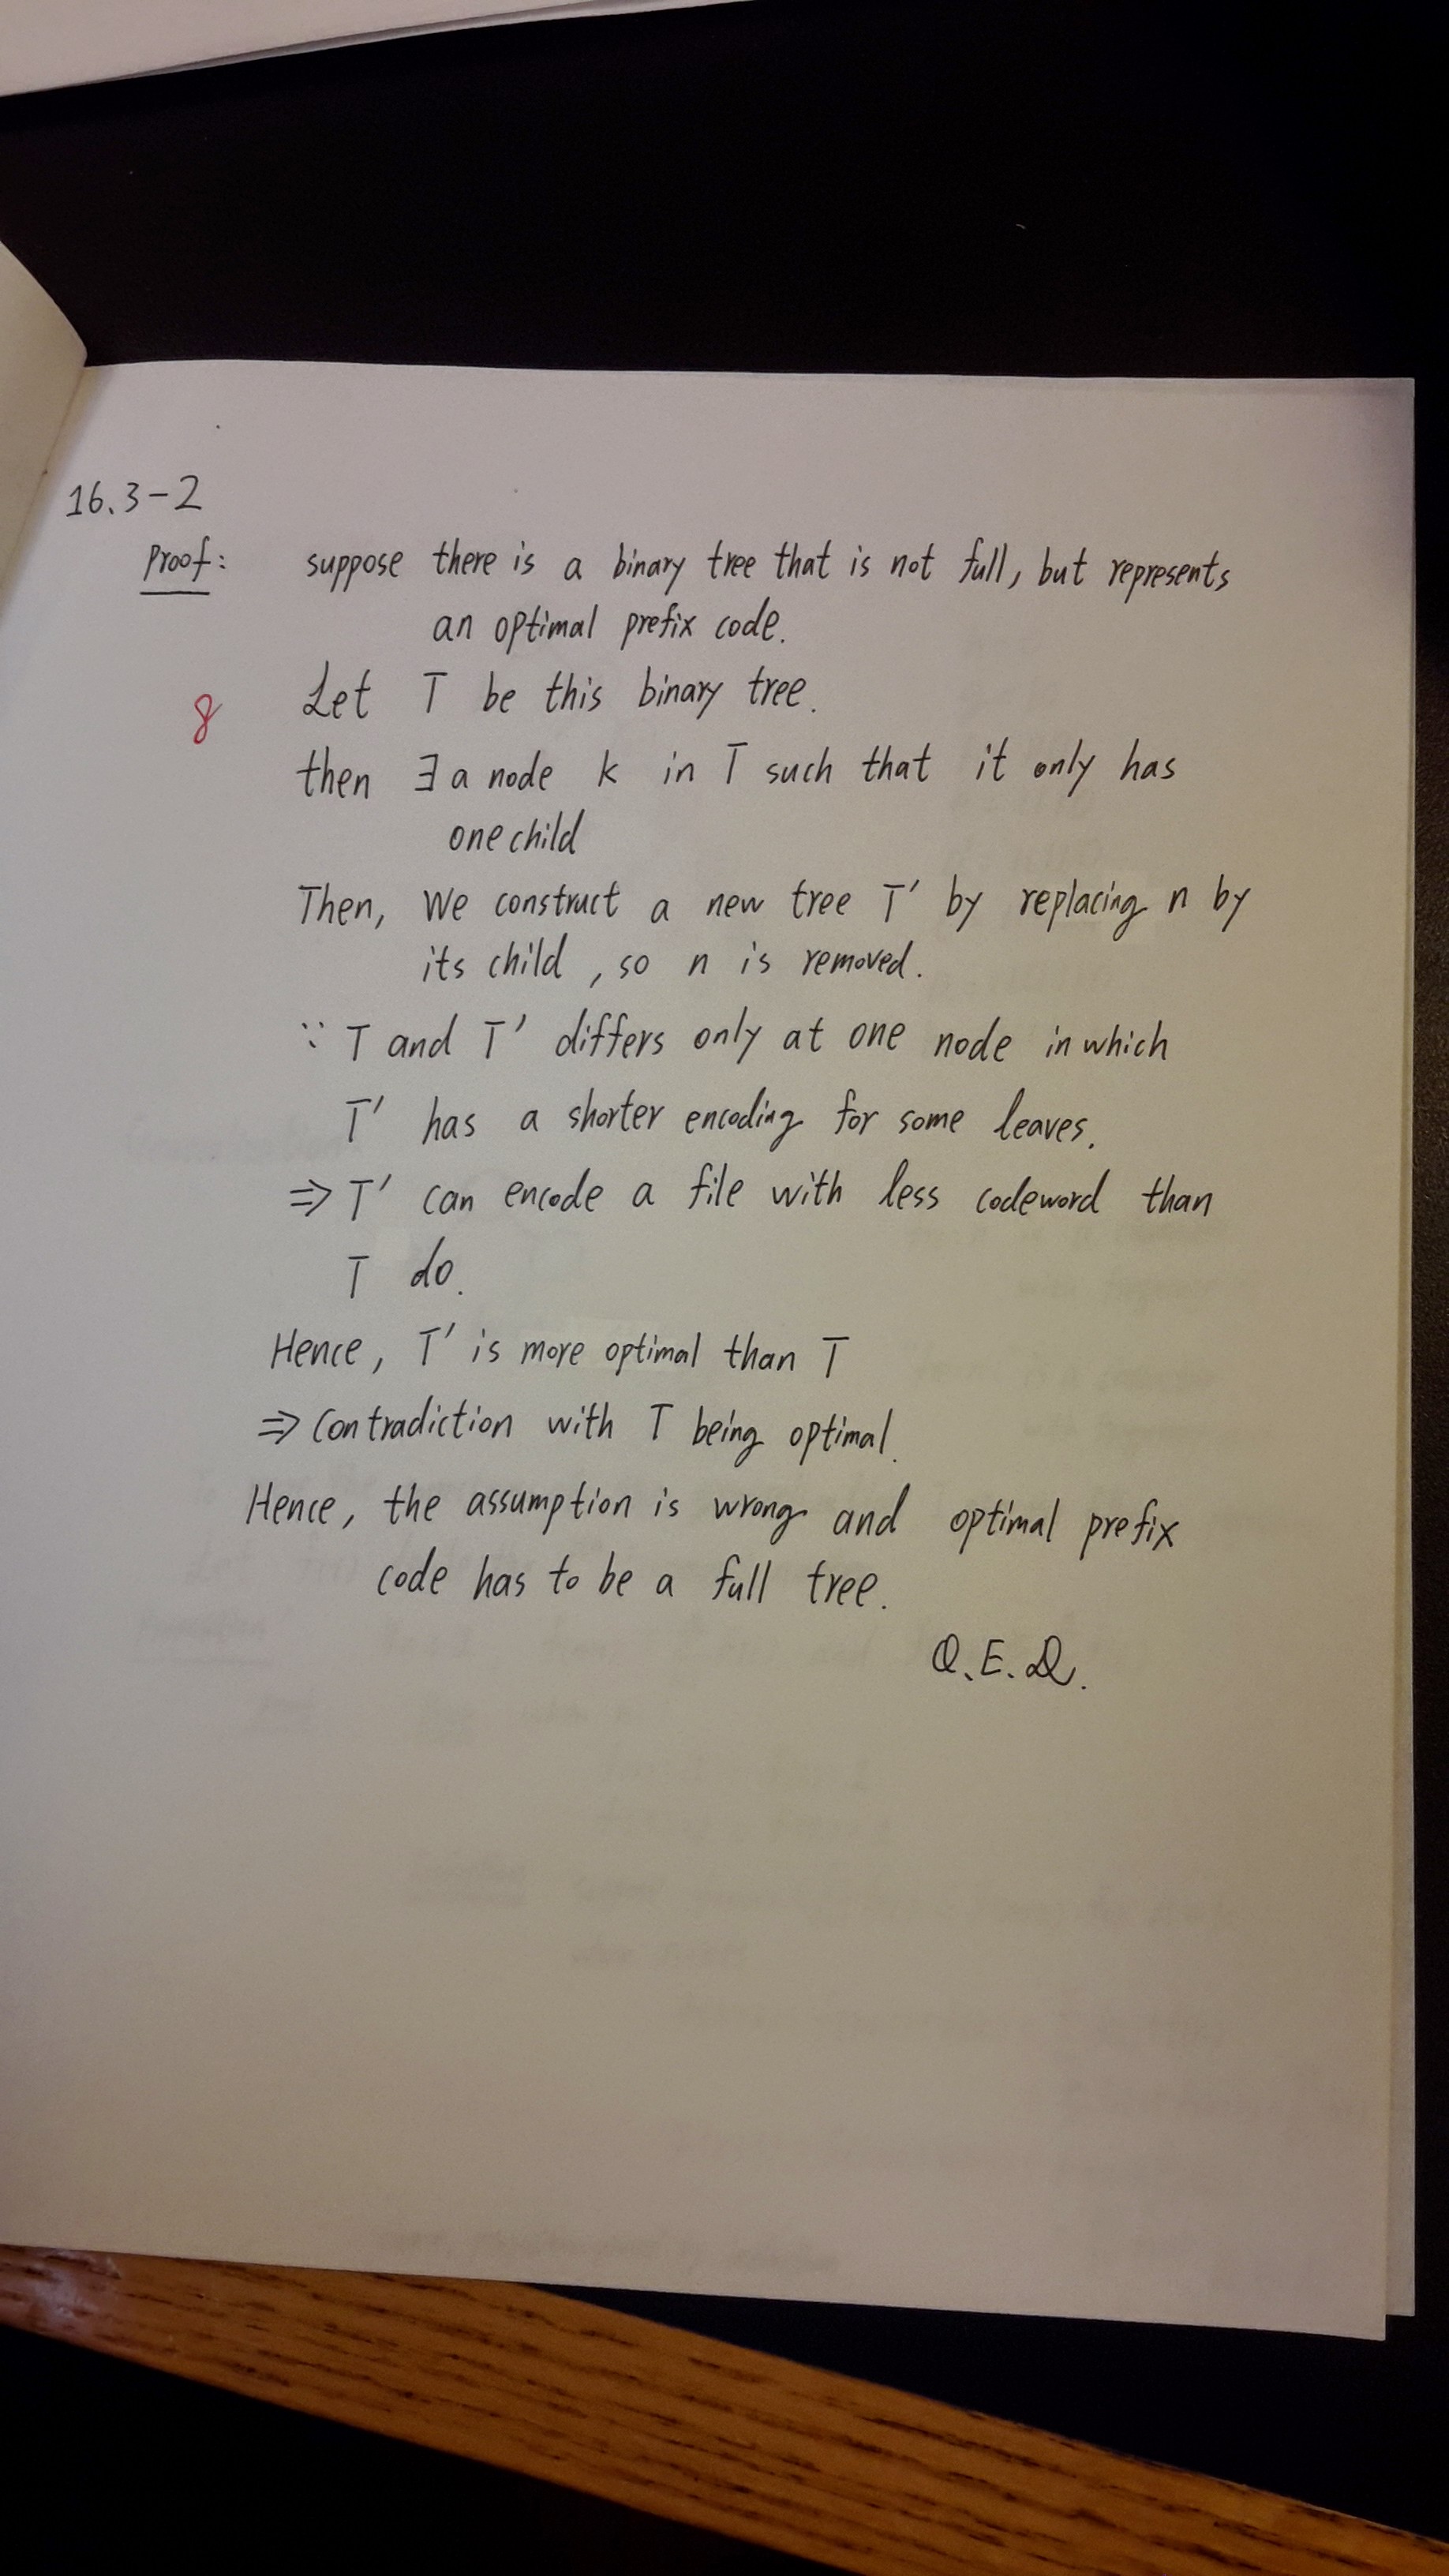 16.3-2
Proof: suppose there is a binary tree that is not full, but represents
an optimal prefix code.
8 Let T be this binary tree.
then ∃ a node k in T such that it only has
one child
Then, We construct a new tree T' by replacing n by
its child, so n is removed.
∵ T and T' differs only at one node in which
T' has a shorter encoding for some leaves.
⇒ T' can encode a file with less codeword than
T do.
Hence, T' is more optimal than T
⇒ Contradiction with T being optimal.
Hence, the assumption is wrong and optimal prefix
code has to be a full tree.
Q.E.D.